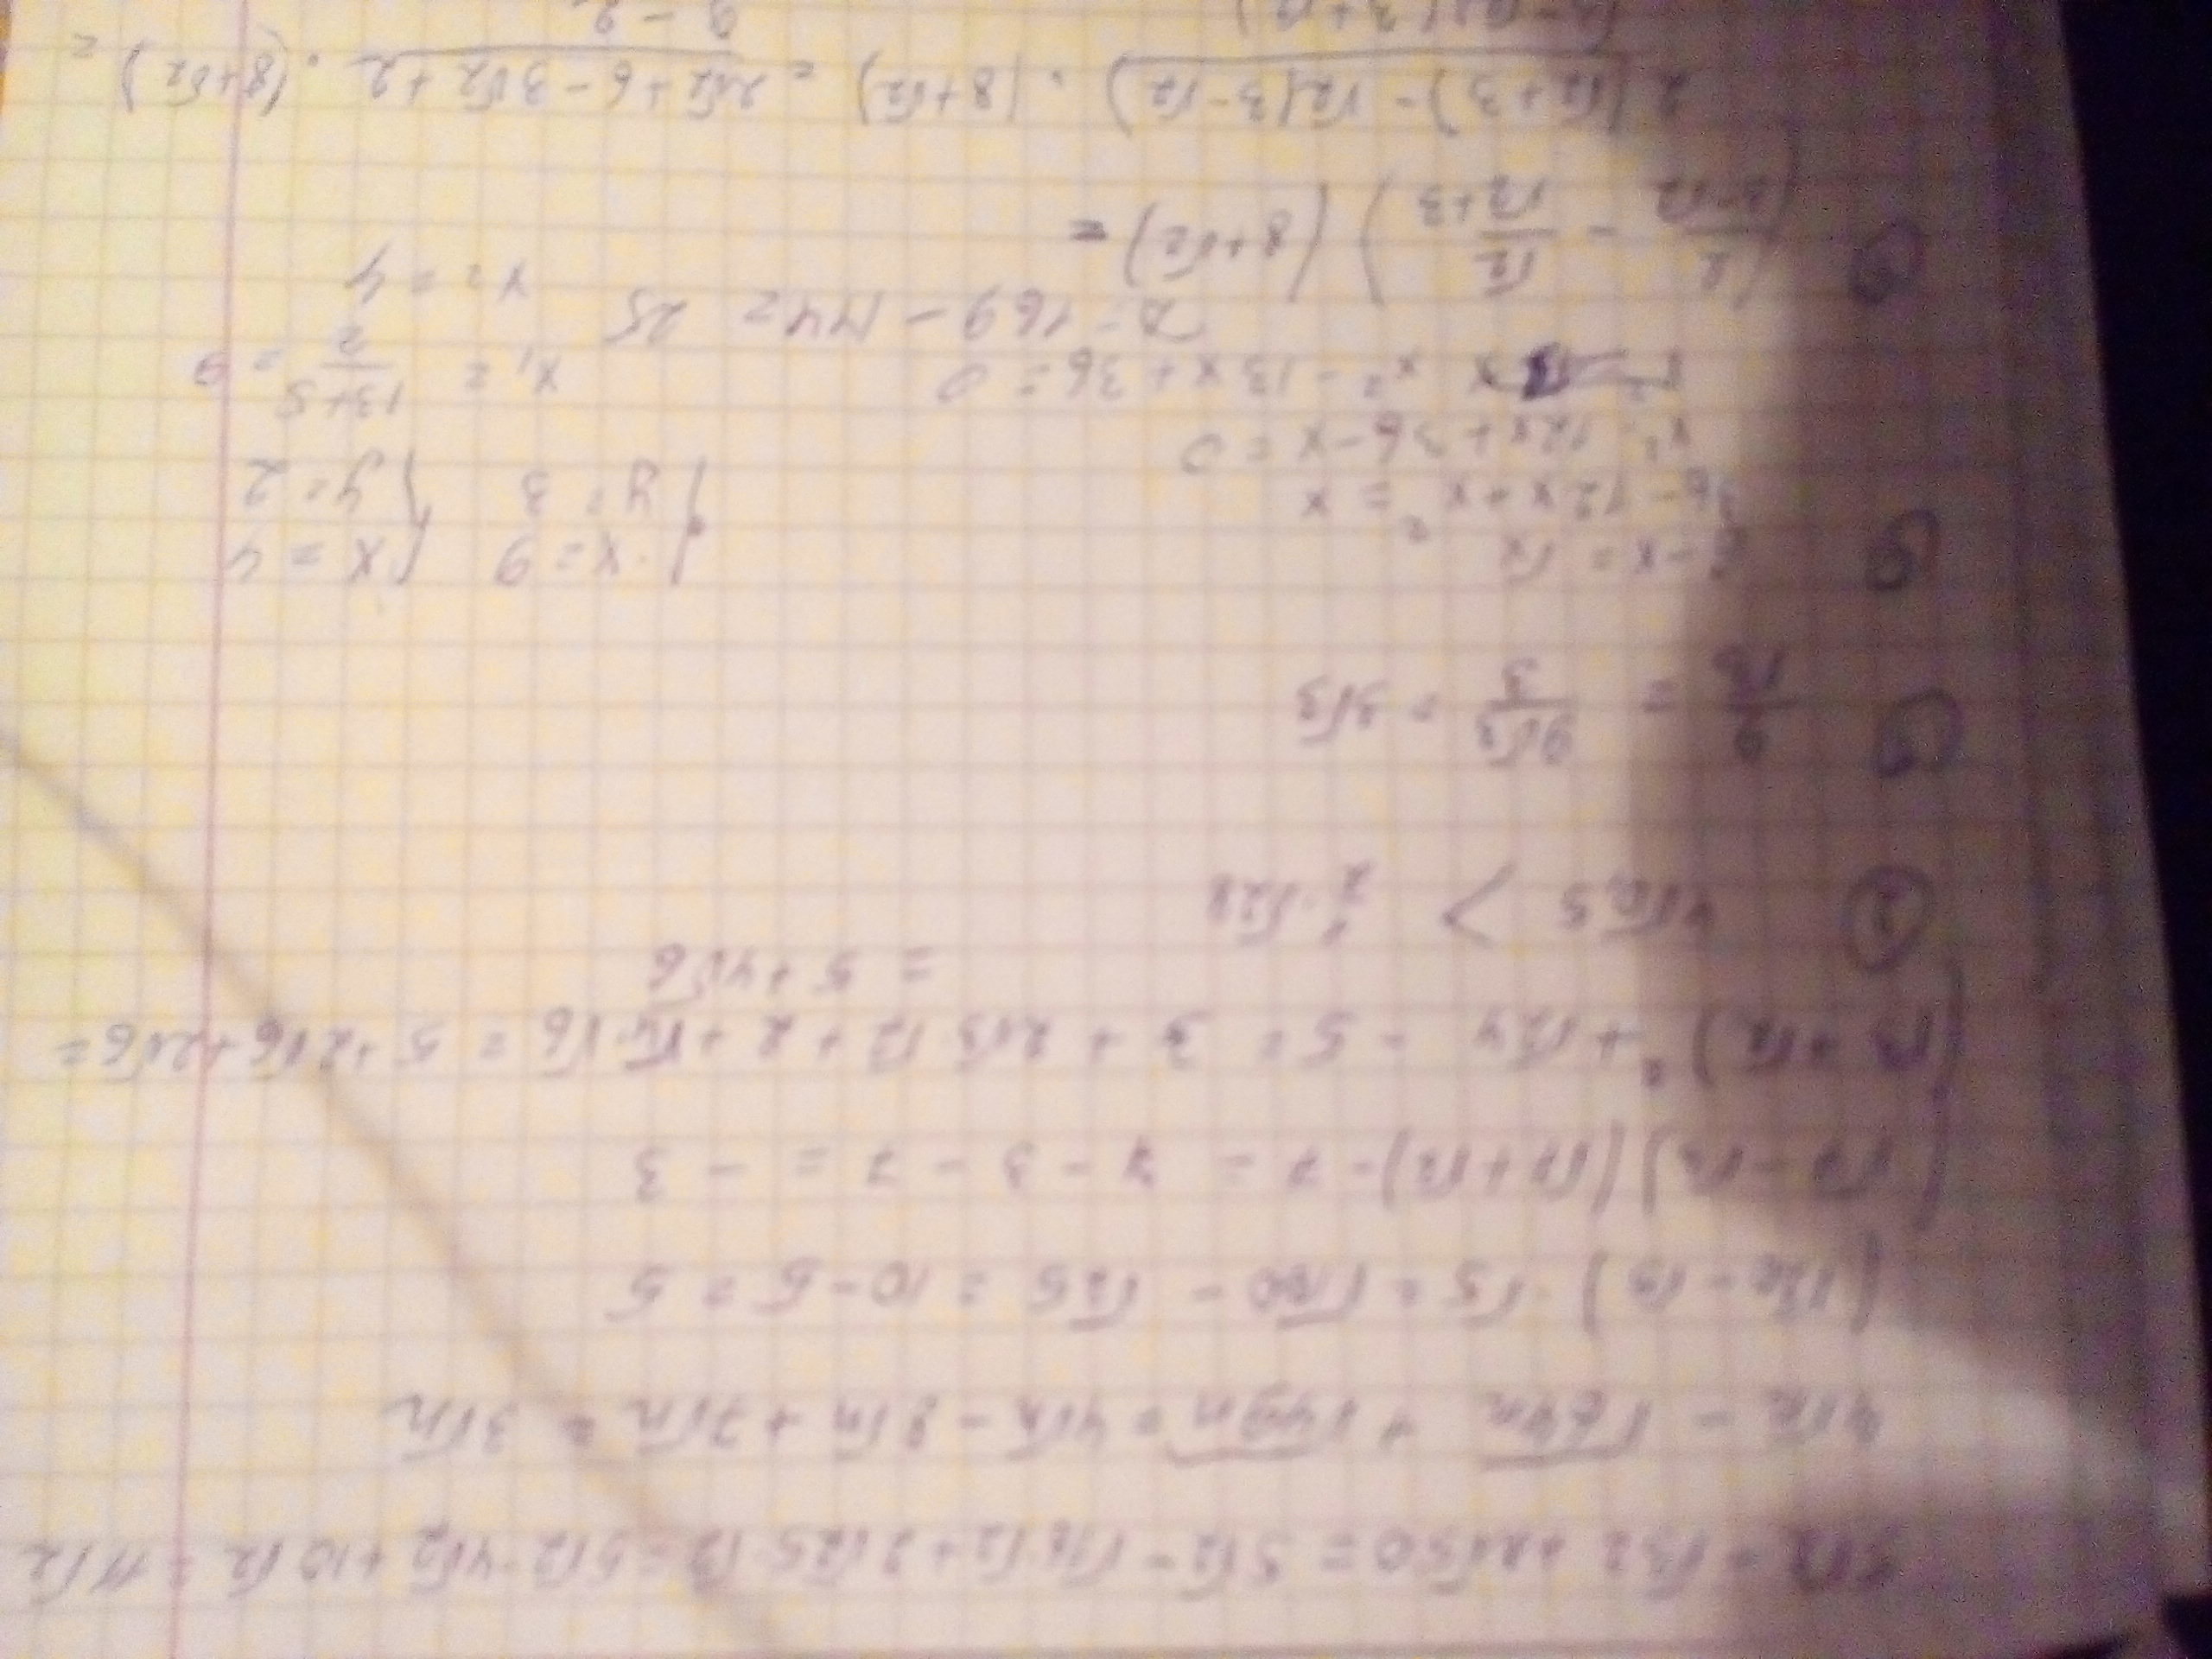 5√2 - √32 + 2√50 = 5√2 - √16·√2 + 2√25·√2 = 5√2 - 4√2 + 10√2 = 11√2
4√n - √64n + √49n = 4√n - 8√n + 7√n = 3√n
(√20 - √5)·√5 = √100 - √25 = 10 - 5 = 5
(√7 - √3)(√7 + √3) - 7 = 7 - 3 - 7 = - 3
(√3 + √2)² + √24 - 5 = 3 + 2√3·√2 + 2 + √4·√6 = 5 + 2√6 + 2√6 =
= 5 + 4√6
② > ½·√28
③ 9/√3 = 9√3/3 = 3√3
6 - x = √x
36 - 12x + x² = x
x² - 12x + 36 - x = 0
x² - 13x + 36 = 0
D = 169 - 144 = 25
x₁ = (13+5)/2 = 9
x₂ = 4
{x = 9 {x = 4
{y = 3 {y = 2
(2/(3-√2) - √2/(√2+3))(8+√2) =
(2(√2+3) - √2(3-√2))/((3-√2)(3+√2)) · (8+√2) = (2√2 + 6 - 3√2 + 2)/(9 - 2) · (8+√2) =